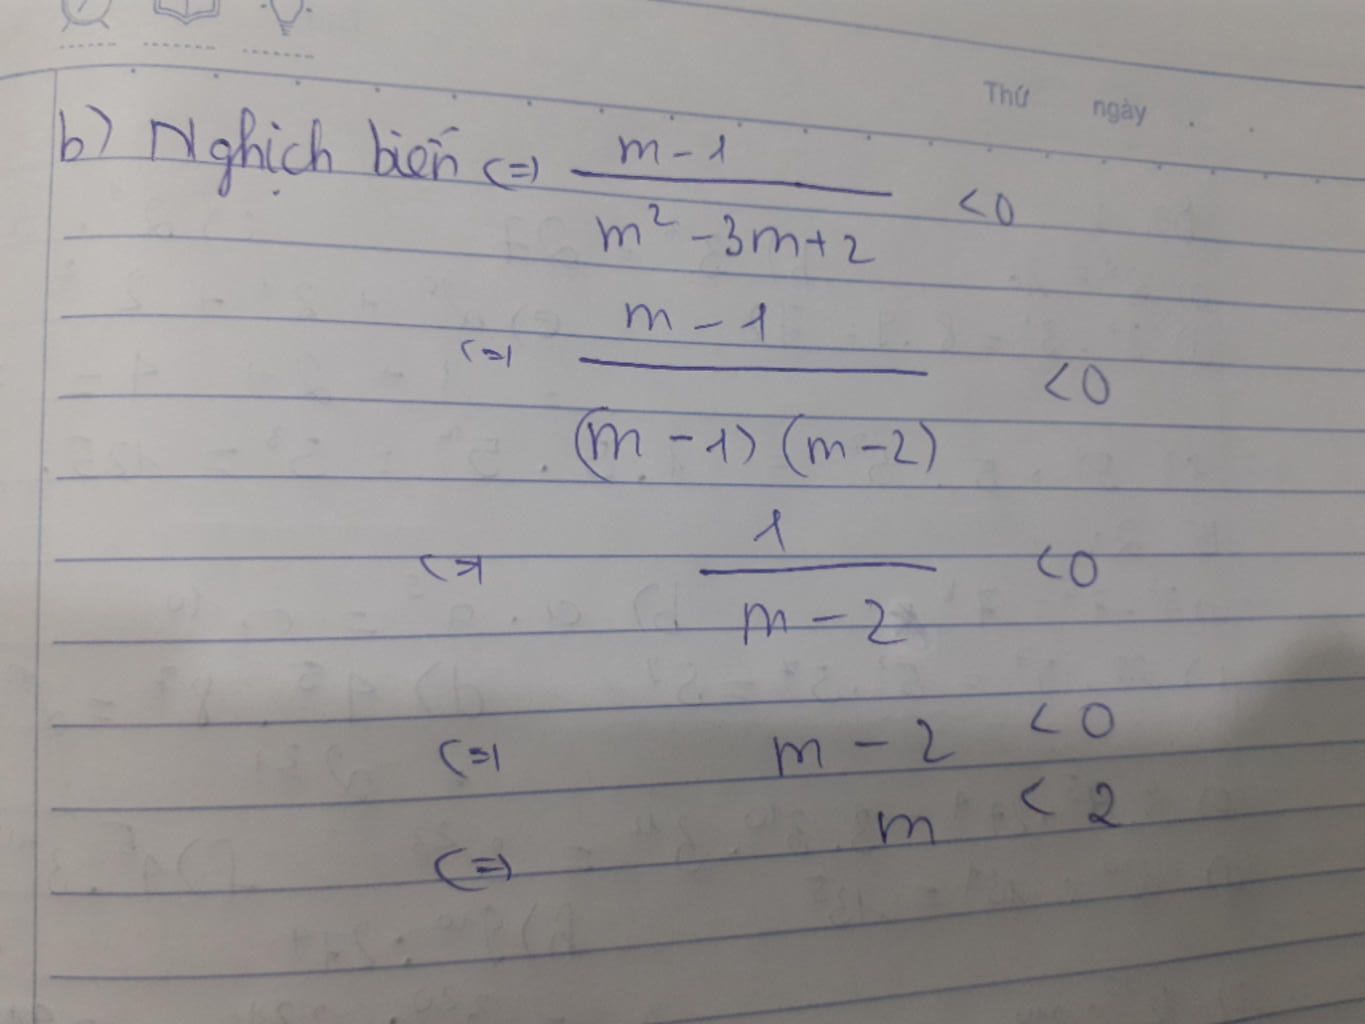 Thứ ngày
b) Nghịch biến <=> m - 1 / m² - 3m + 2 < 0
<=> m - 1 / (m - 1) (m - 2) < 0
<=> 1 / m - 2 < 0
<=> m - 2 < 0
<=> m < 2